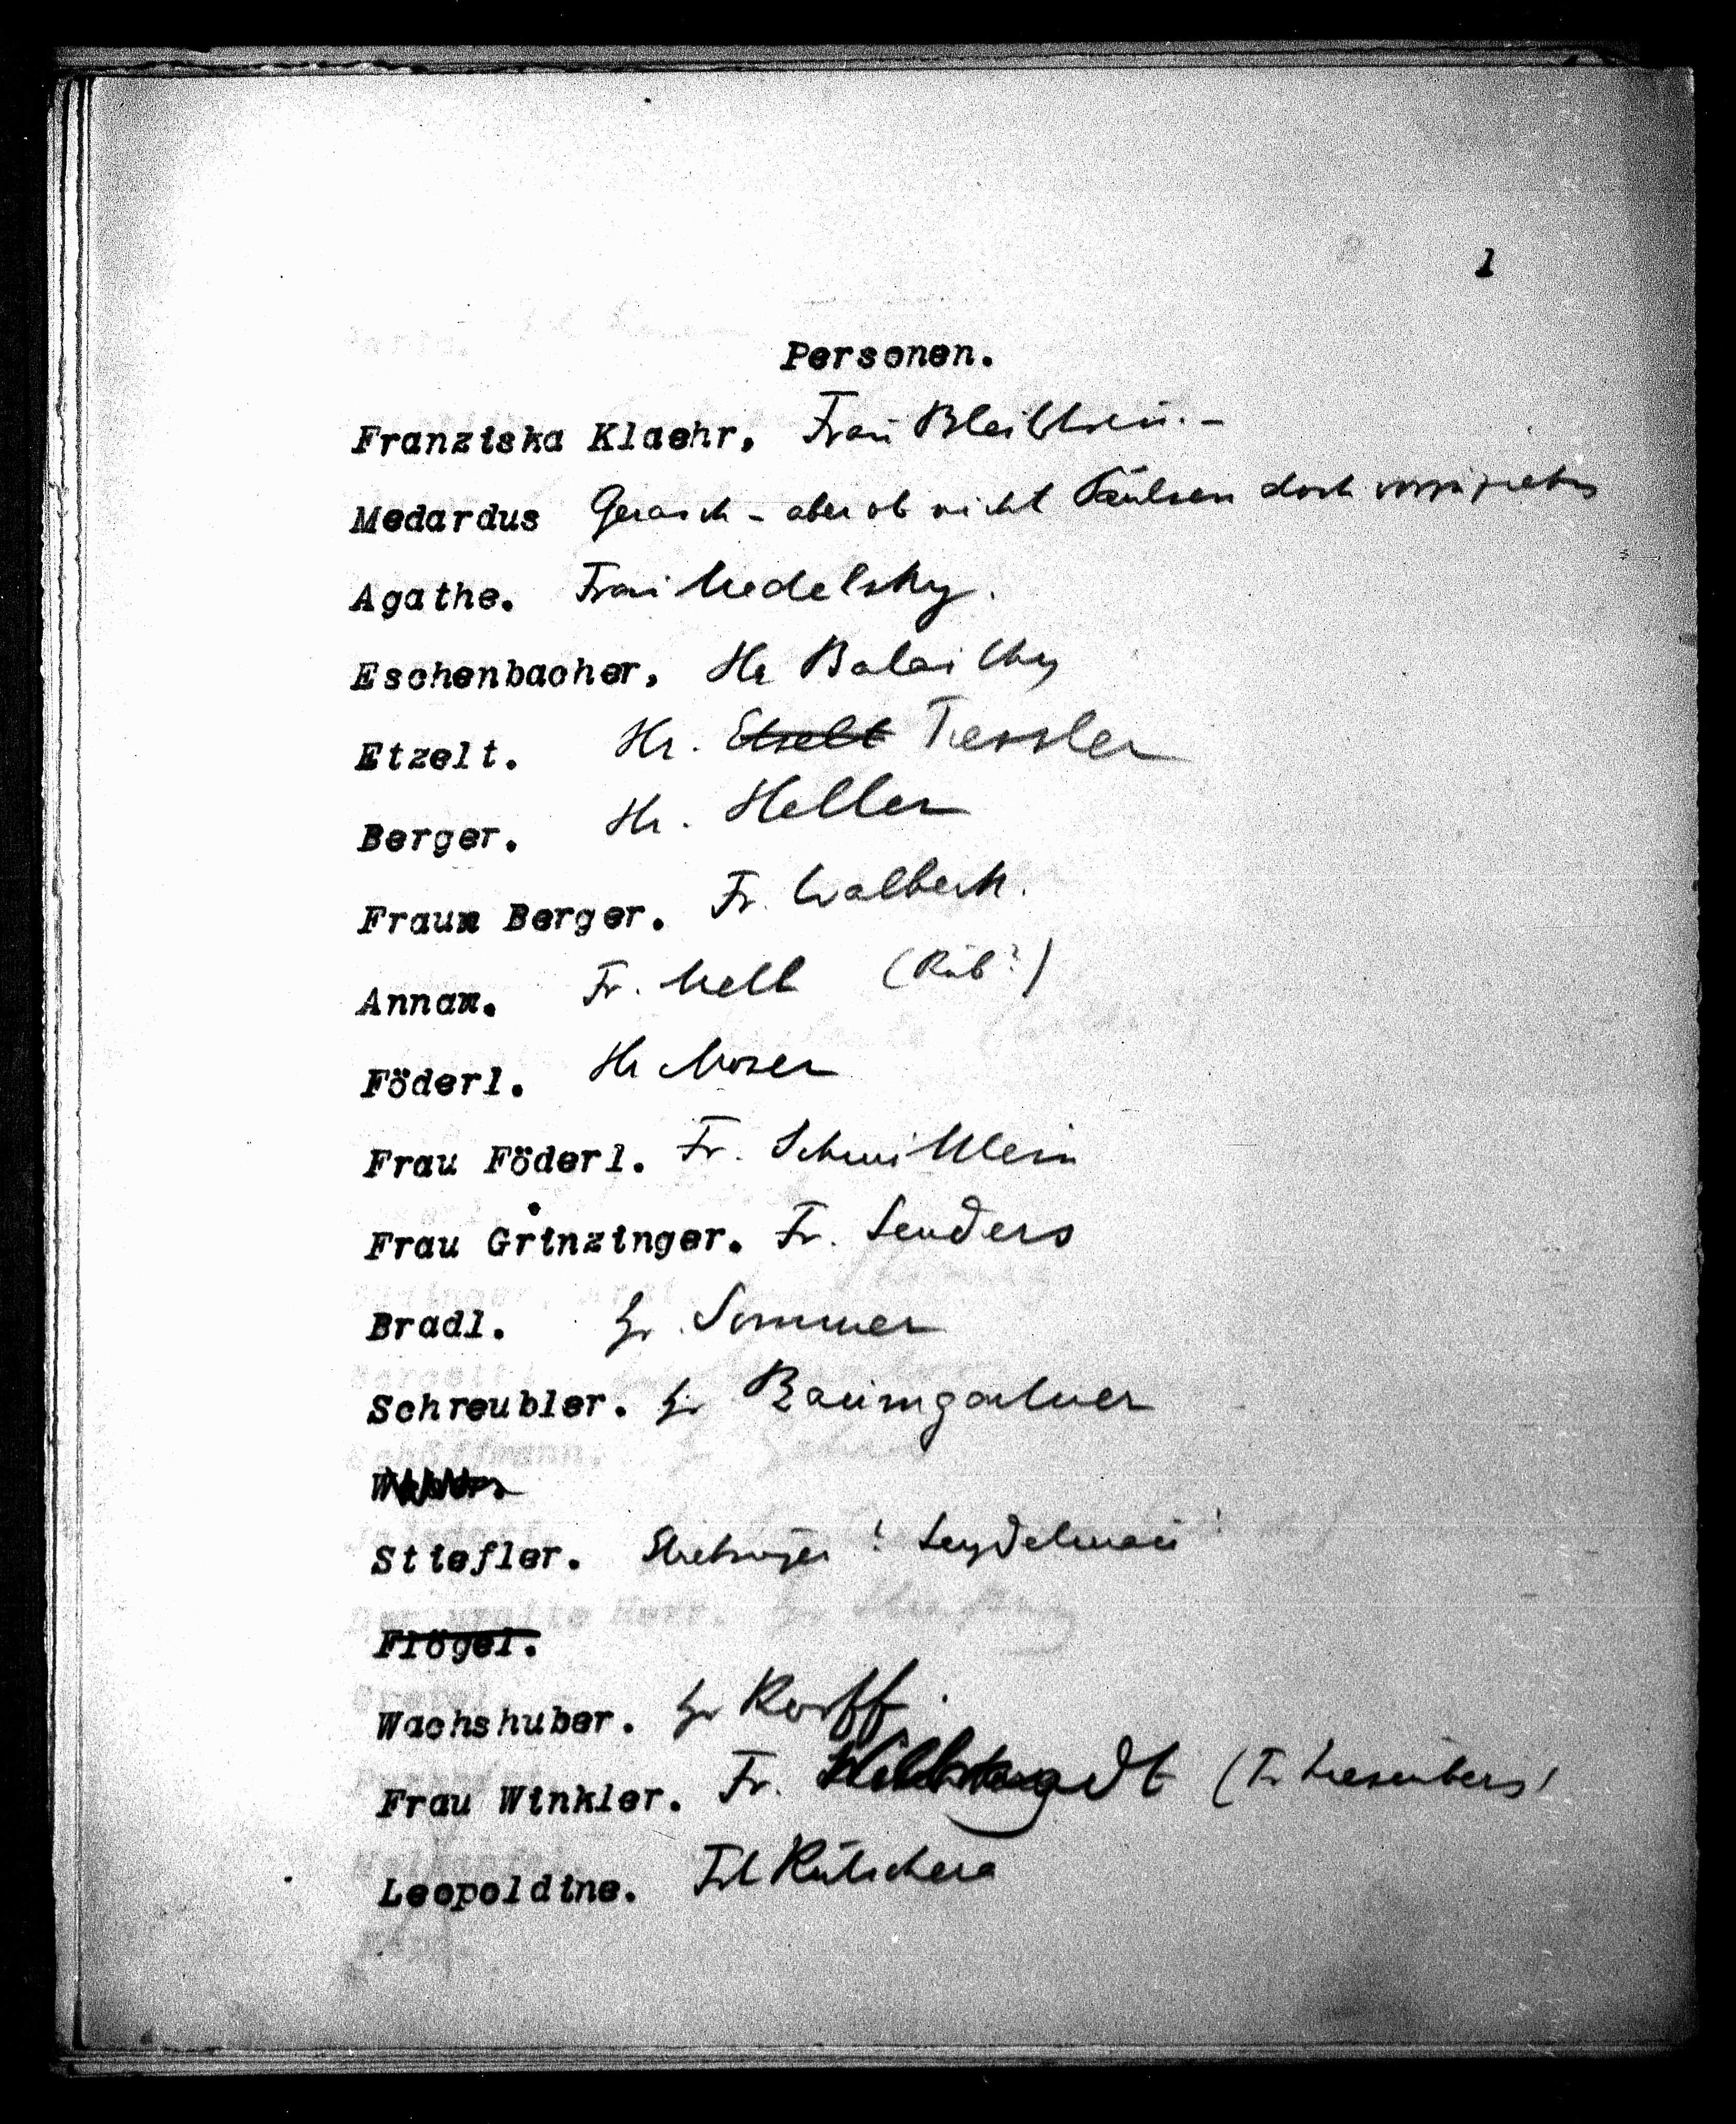 1
Personen.
Franziska Klaehr, Frau Bleibtreu. –
Medardus Gerasch – aber ob nicht Paulsen doch vorzuziehen
Agathe. Frau Medelsky.
Eschenbacher, Hr Balaithy
Etzelt. Hr. Etzelt Tressler
Berger. Hr. Heller
Fraum Berger. Fr. Walbeck.
Annam. Fr. Mell (Rub?)
Föderl. Hr Moser
Frau Föderl. Fr. Schmittlein
Frau Grinzinger. Fr. Senders
Bradl. Hr. Sommer
Schreubler. Hr Baumgartner
Stiefler. Seydelmann
Flögel.
Wachshuber. Hr Korff.
Frau Winkler. Fr.
Leopoldine. Frl Kutschera